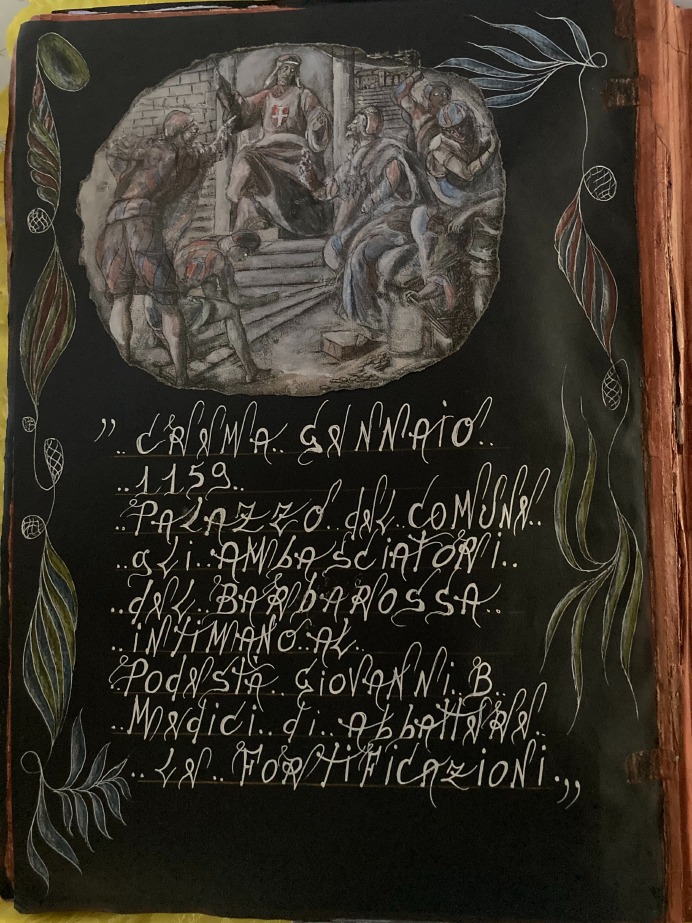 ,, .. CREMA .. GENNAIO ..
.. 1159 ..
.. PALAZZO .. deL .. COMUNE ..
.. gLi .. AMbASCIATORi ..
.. deL .. BARbAROSSA ..
.. iNTiMANO .. AL ..
.. PodeSTà .. GiOVANNi .. B ..
.. Medici .. di .. AbbATTeRe ..
.. Le .. FORTiFicAziONi . ,,